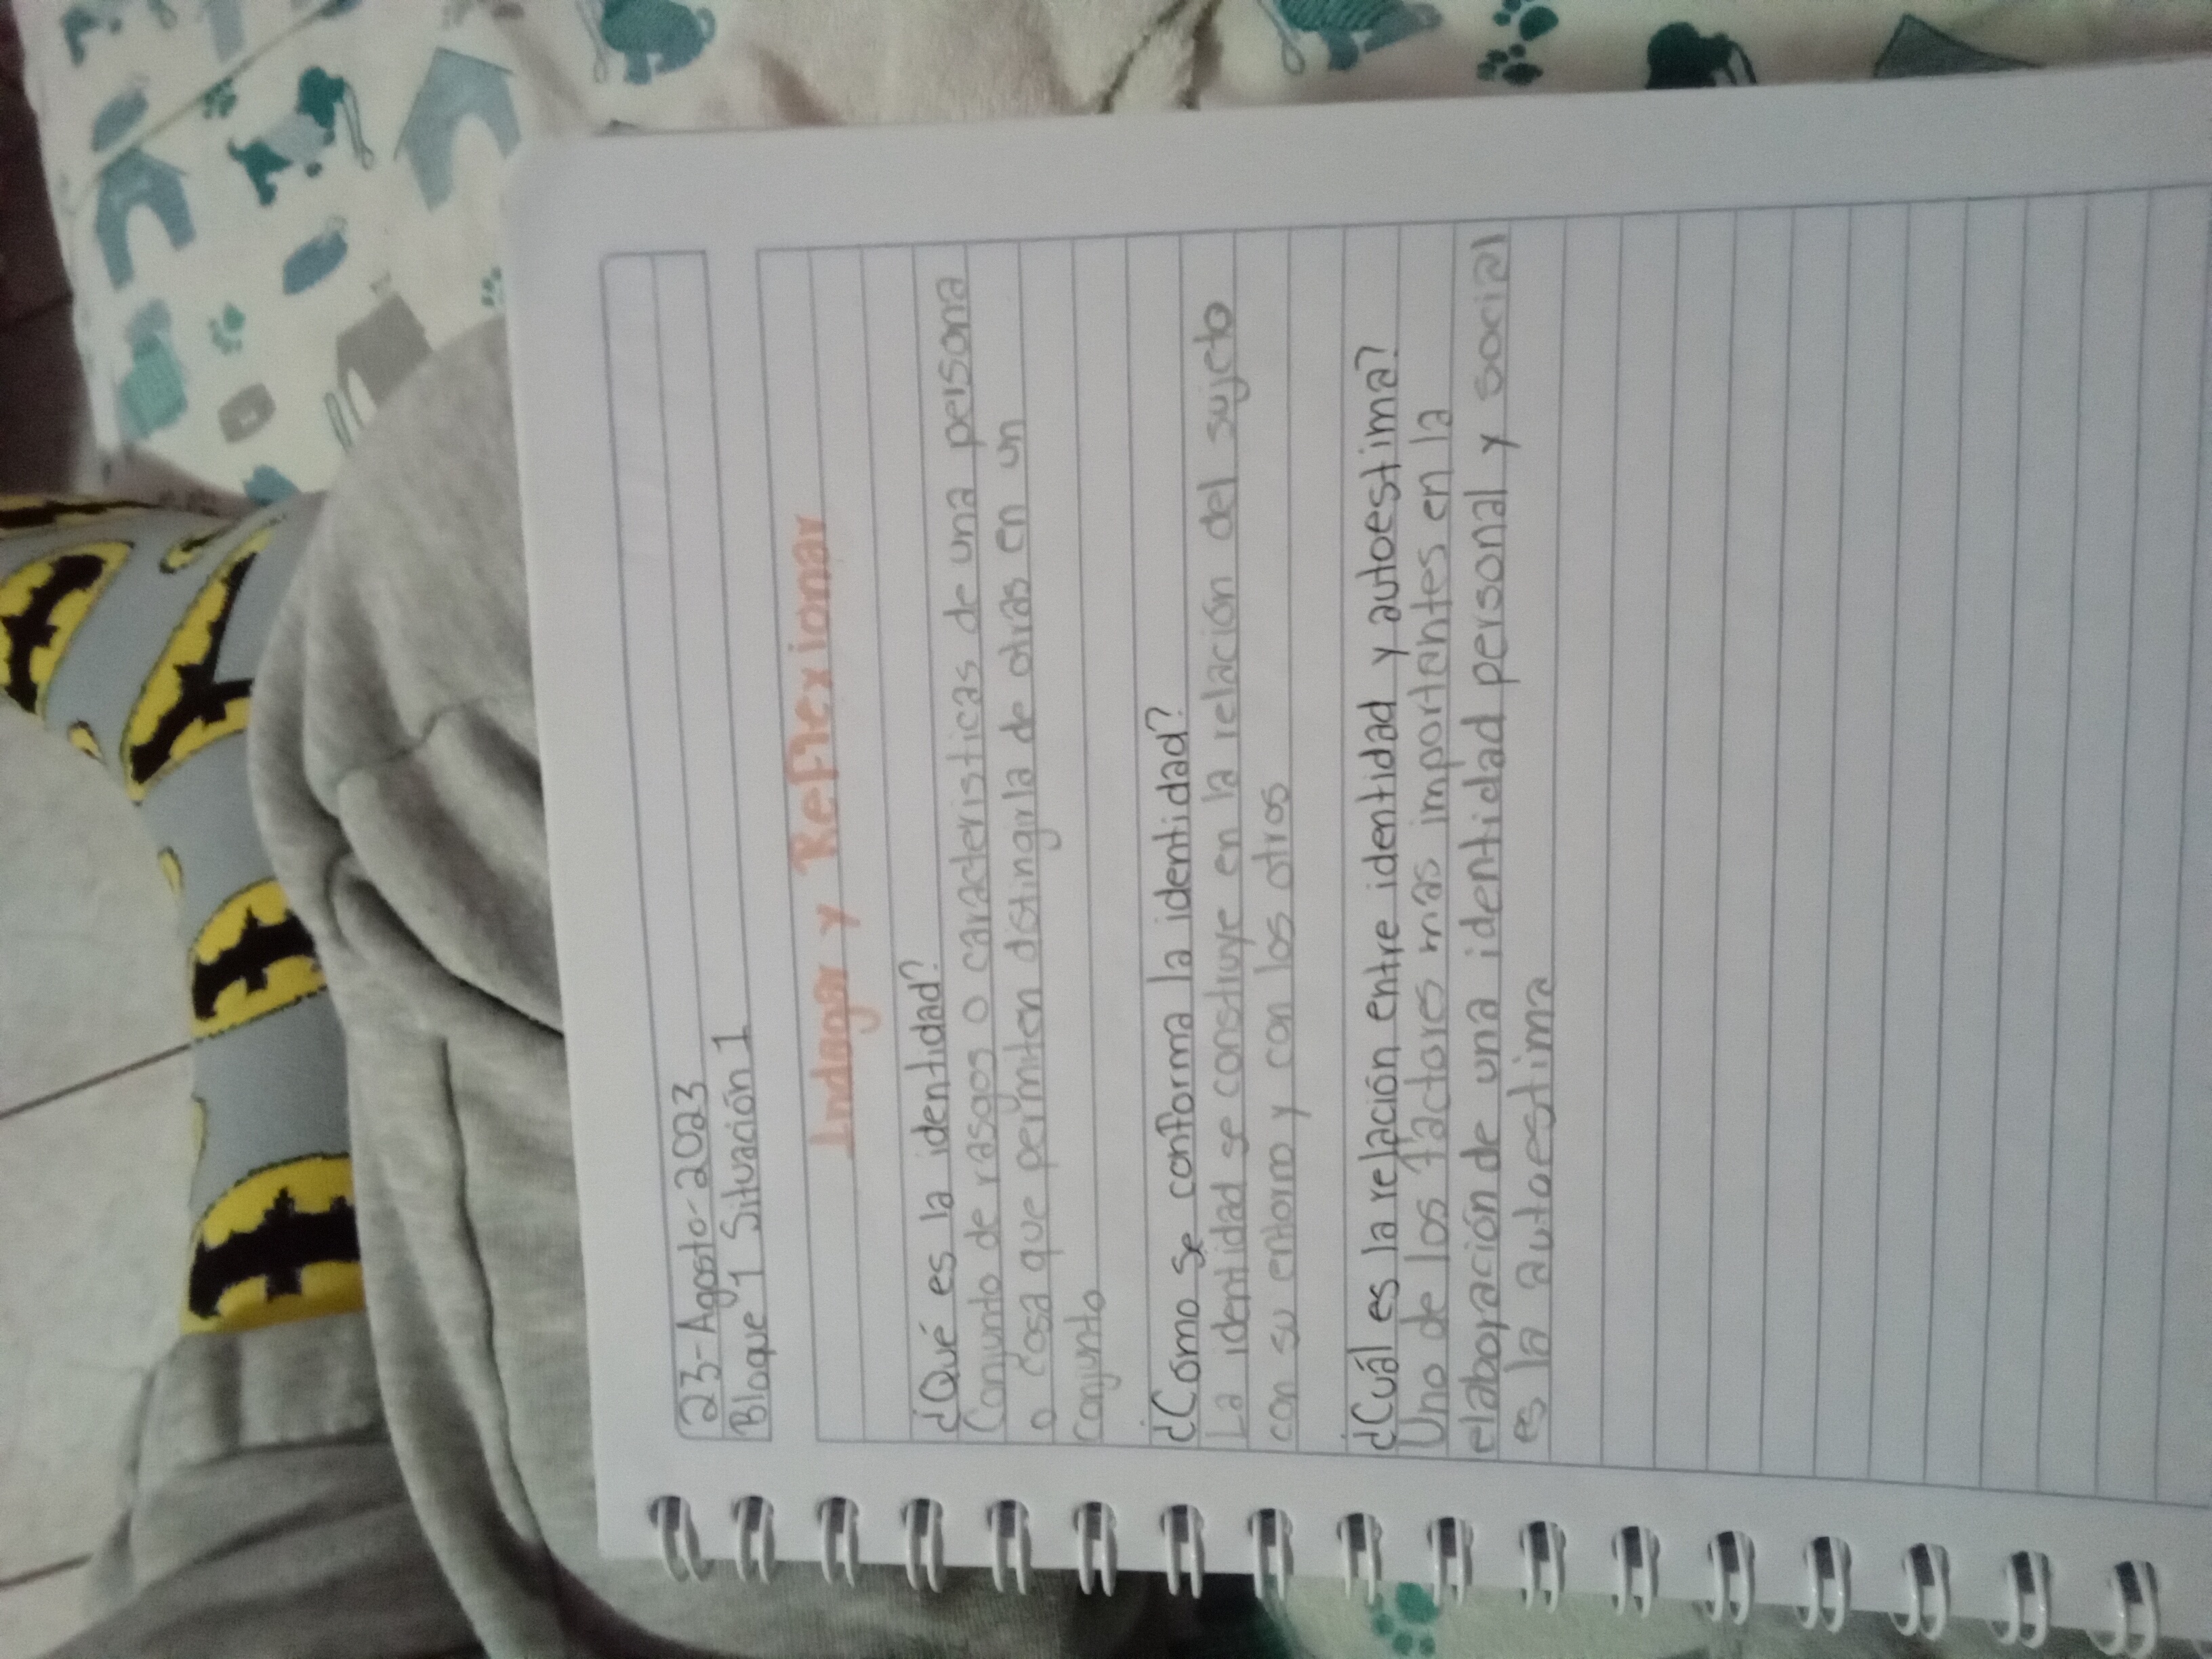 23-Agosto-2023
Bloque 1 Situación 1
Indagar y Reflexionar
¿Qué es la identidad?
Conjunto de rasgos o caracteristicas de una persona
o cosa que permiten distinguirla de otras en un
conjunto
¿Como se conforma la identidad?
La identidad se construye en la relación del sujeto
con su entorno y con los otros
¿Cuál es la relación entre identidad y autoestima?
Uno de los factores mas importantes en la
elaboración de una identidad personal y social
es la autoestima